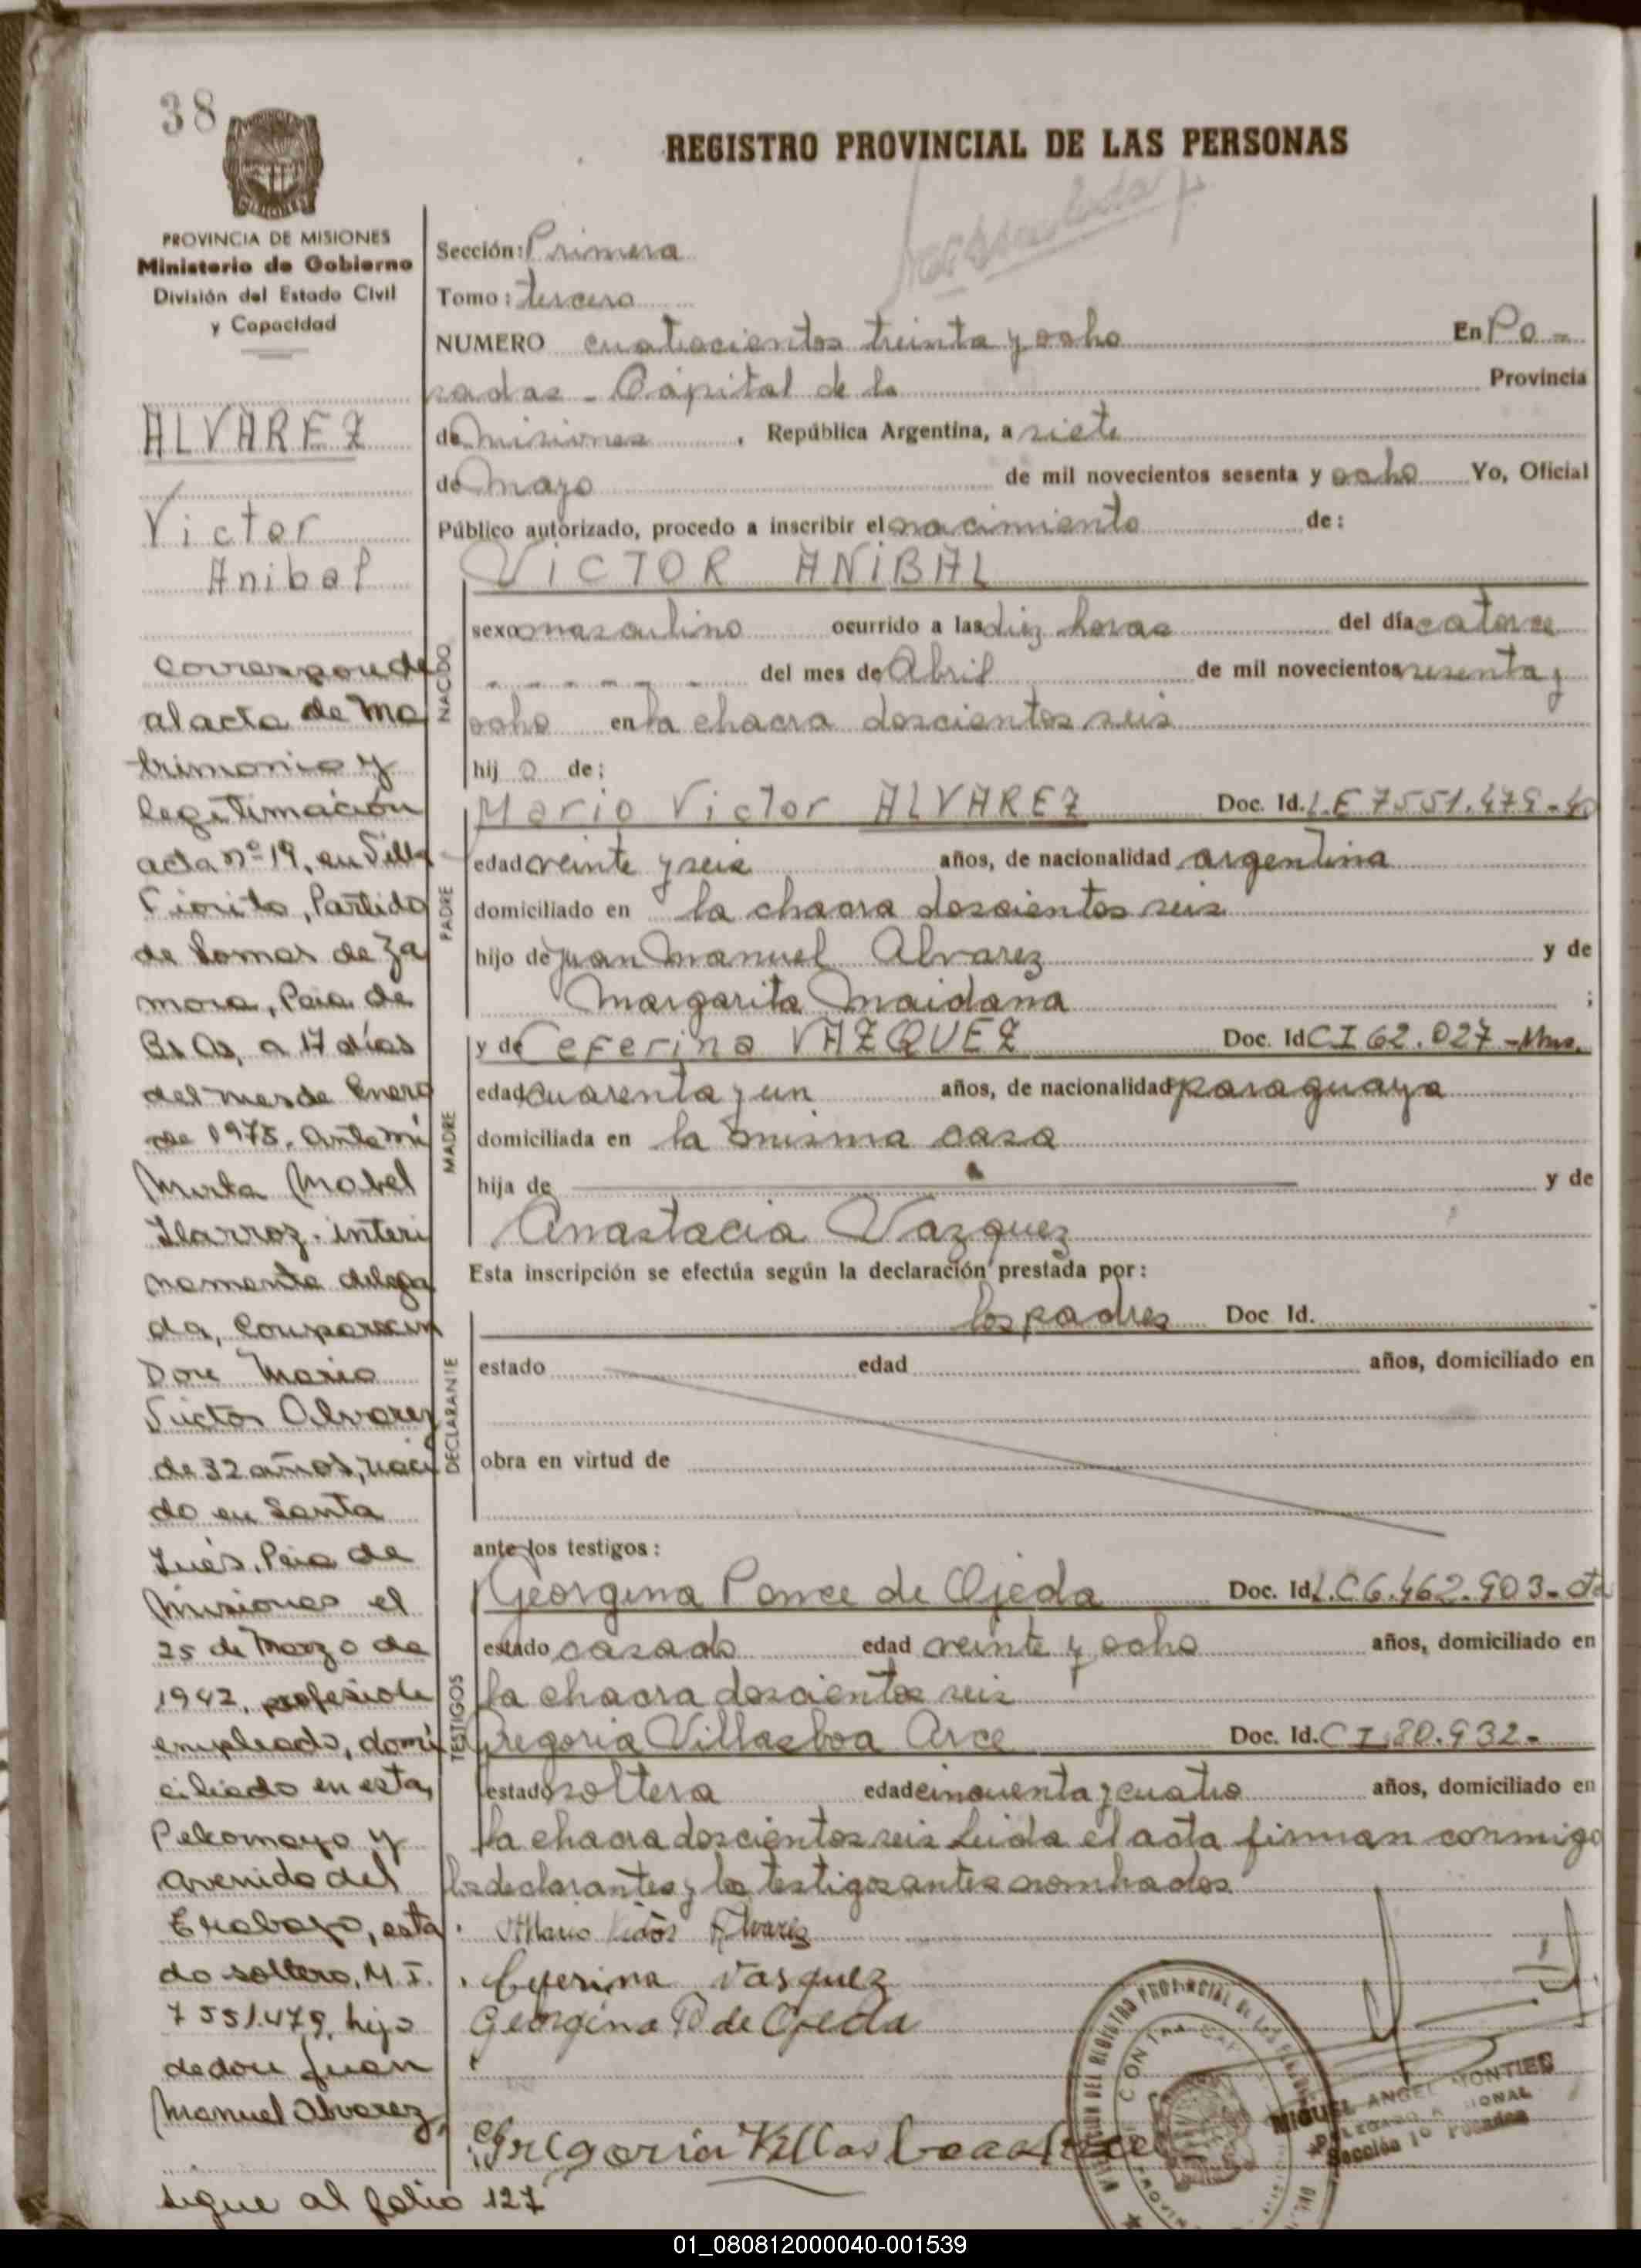 38
REGISTRO PROVINCIAL DE LAS PERSONAS
PROVINCIA DE MISIONES
Ministerio de Gobierno
División del Estado Civil
y Capacidad
ALVAREZ
Victor
Anibal
corresponde
al acta de ma
trimonio y
legitimación
acta nº 19, en Villa
Fiorito, Partido
de Lomas de Za
mora, Pcia de
Bs As, a 17 días
del mes de Enero
de 1975. Ante mí
Mirta Mabel
Ilarroz. interi
namente delega
da, Comparecen
Don Mario
Victor Alvarez
de 32 años, naci
do en Santa
Inés. Pcia de
Misiones el
25 de Marzo de
1942, profesión
empleado, domi
ciliado en esta,
Pilcomayo y
avenida del
Trabajo, esta
do soltero, M. I.
7551.479, hijo
de don Juan
Manuel Alvarez,
sigue al folio 127
Sección: Primera
Tomo: tercero
NUMERO cuatrocientos treinta y ocho En Po-
sadas - Capital de la Provincia
de misiones, República Argentina, a siete
de Mayo de mil novecientos sesenta y ocho Yo, Oficial
Público autorizado, procedo a inscribir el nacimiento de:
VICTOR ANIBAL
NACIDO
sexo masculino ocurrido a las diez horas del día catorce
del mes de Abril de mil novecientos sesenta y
ocho en la chacra doscientos seis
hijo de:
Mario Victor ALVAREZ Doc. Id. L.E 7551.479-
PADRE
edad veinte y seis años, de nacionalidad argentina
domiciliado en la chacra doscientos seis
hijo de Juan Manuel Alvarez y de
Margarita Maidana;
y de Ceferina VAZQUEZ Doc. Id CI 62.027 -Mnes.
MADRE
edad cuarenta y un años, de nacionalidad paraguaya
domiciliada en la misma casa
hija de y de
Anastacia Vazquez
Esta inscripción se efectúa según la declaración prestada por:
los padres Doc Id.
DECLARANTE
estado edad años, domiciliado en
obra en virtud de
ante los testigos:
Georgina Ponce de Ojeda Doc. Id. L.C 6.462.903-
TESTIGOS
estado casada edad veinte y ocho años, domiciliado en
la chacra doscientos seis
Gregoria Villasboa Arce Doc. Id. C I 80.932-
estado soltera edad cincuenta y cuatro años, domiciliado en
la chacra doscientos seis Leida el acta firman conmigo
los declarantes y los testigos antes nombrados
Mario Victor Alvarez
Ceferina Vasquez
Georgina P de Ojeda
Gregoria Villasboa Arce
MIGUEL ANGEL MONTIEL
Sección 1º Posadas
01_080812000040-001539